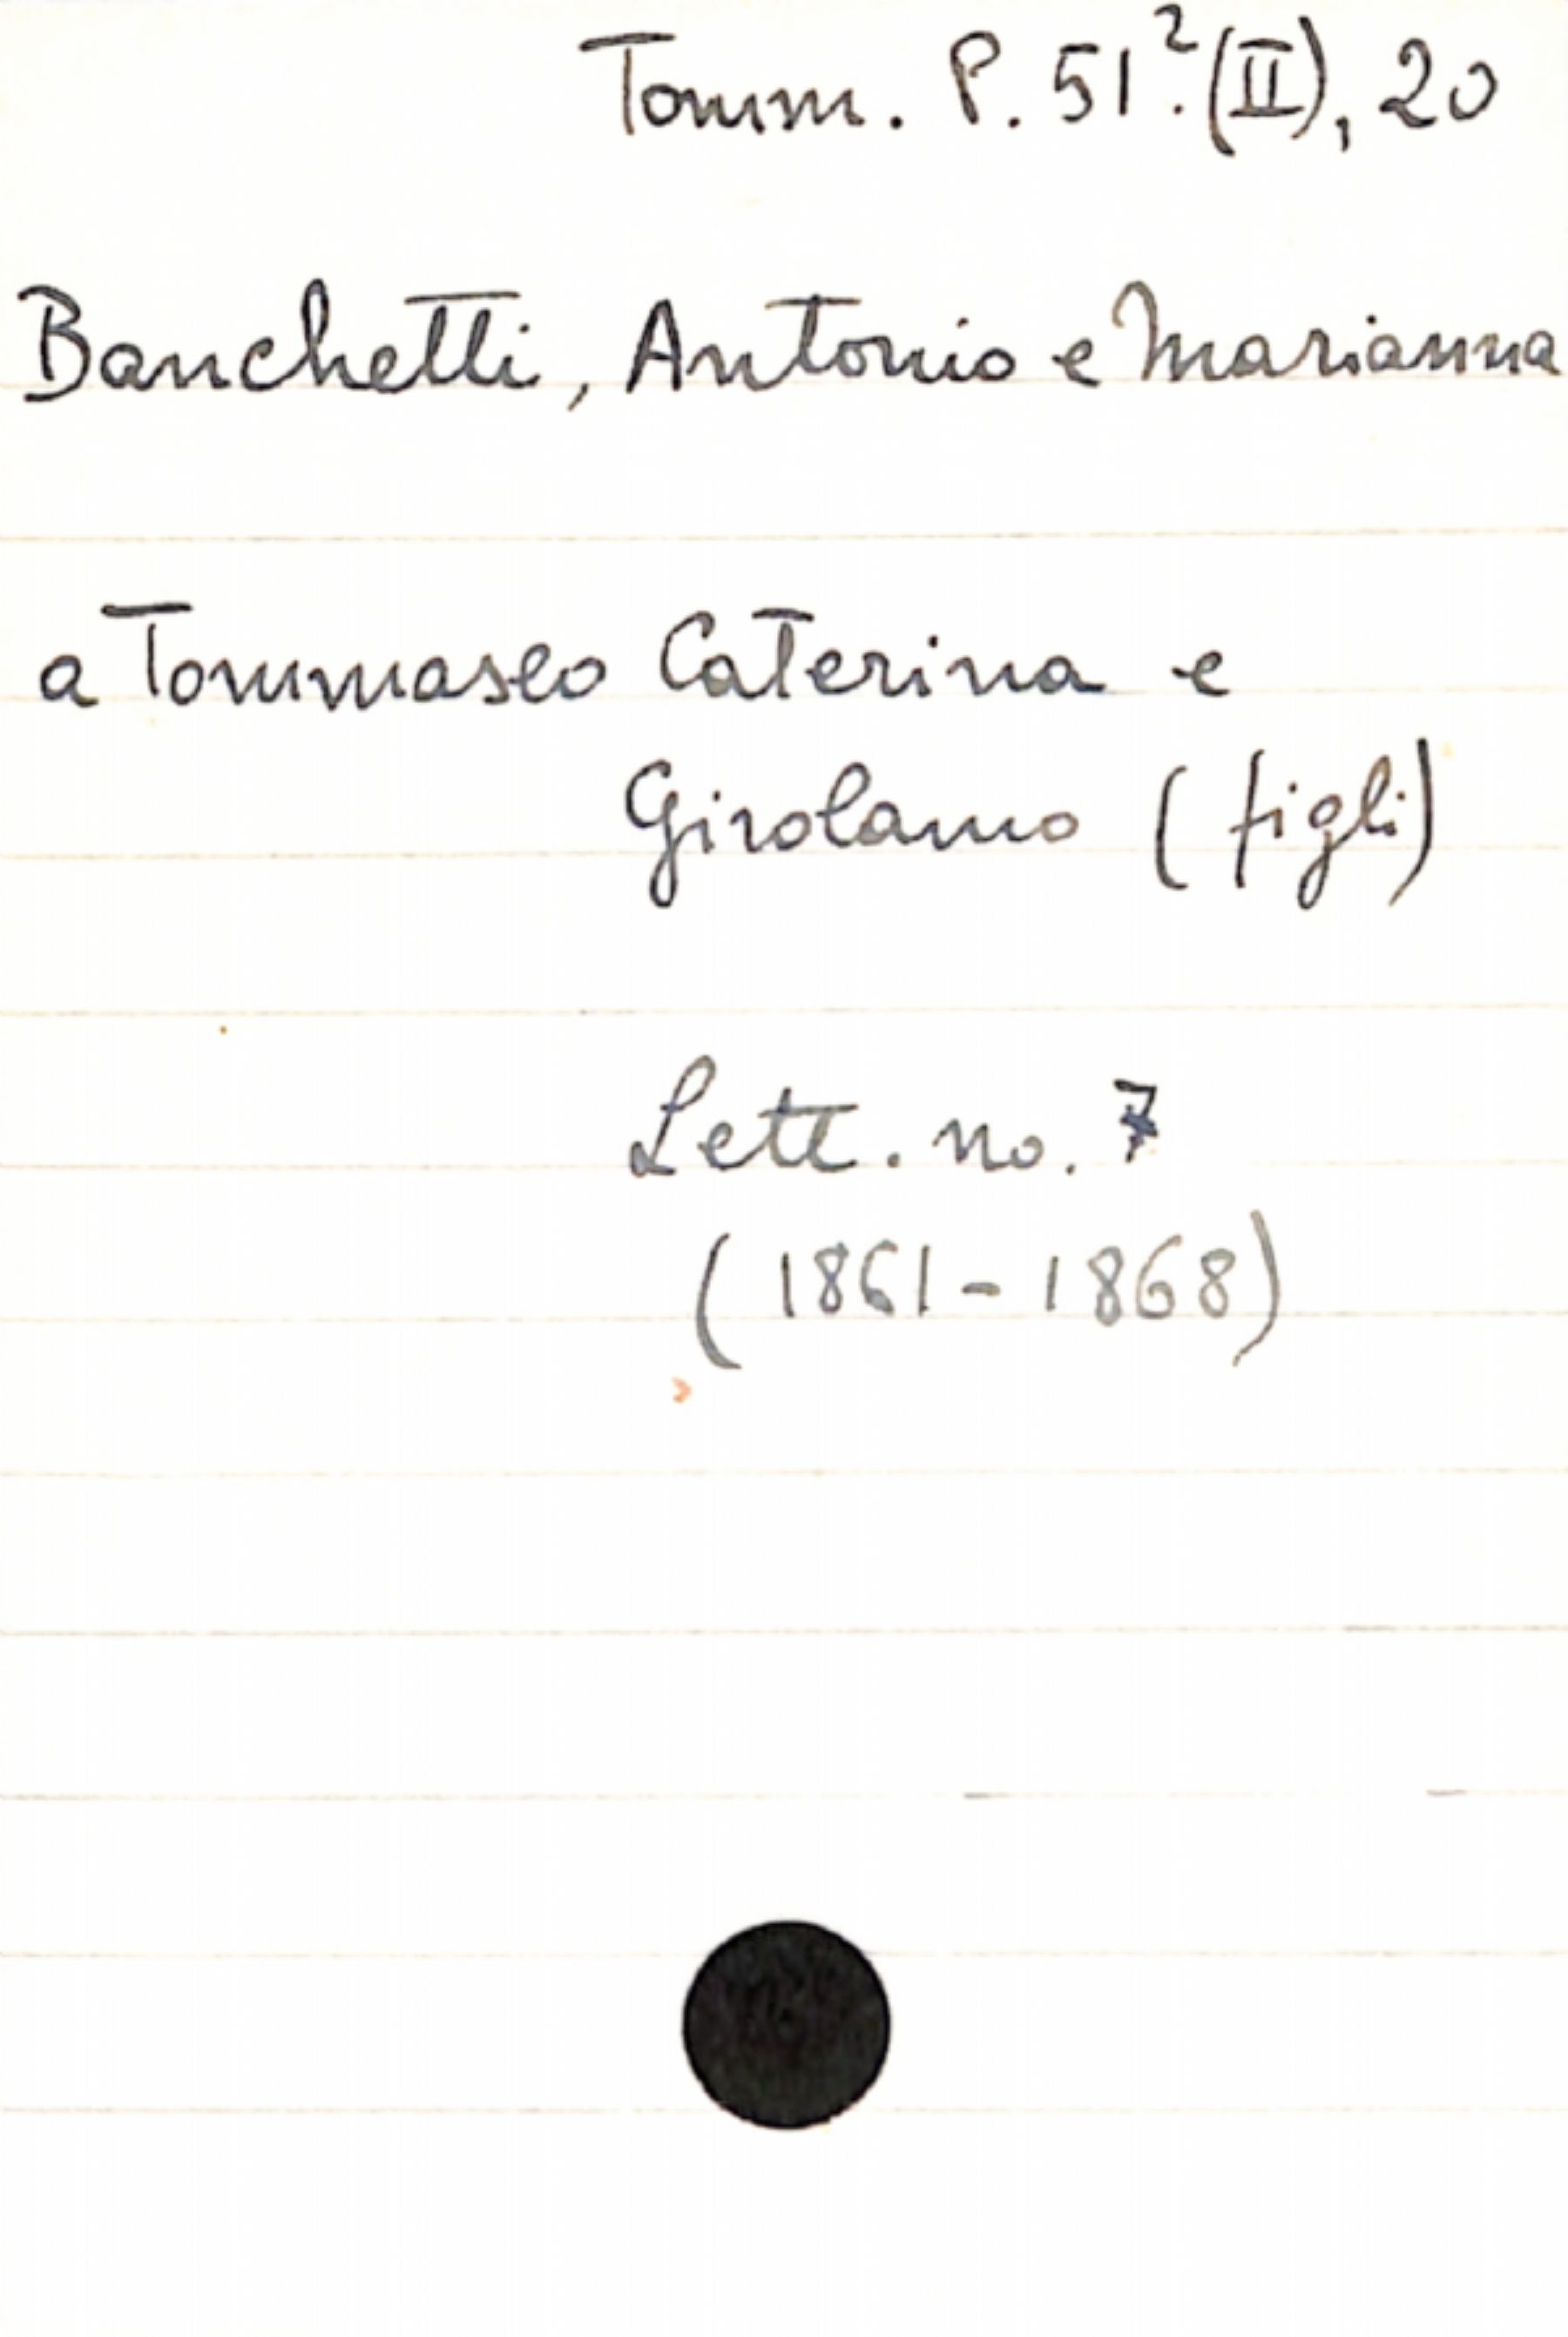 Tomm. P. 51².(II), 20
Banchetti, Antonio e Marianna
a Tommaseo Caterina e
Girolamo (figli)
Lett. no. 7
(1861-1868)